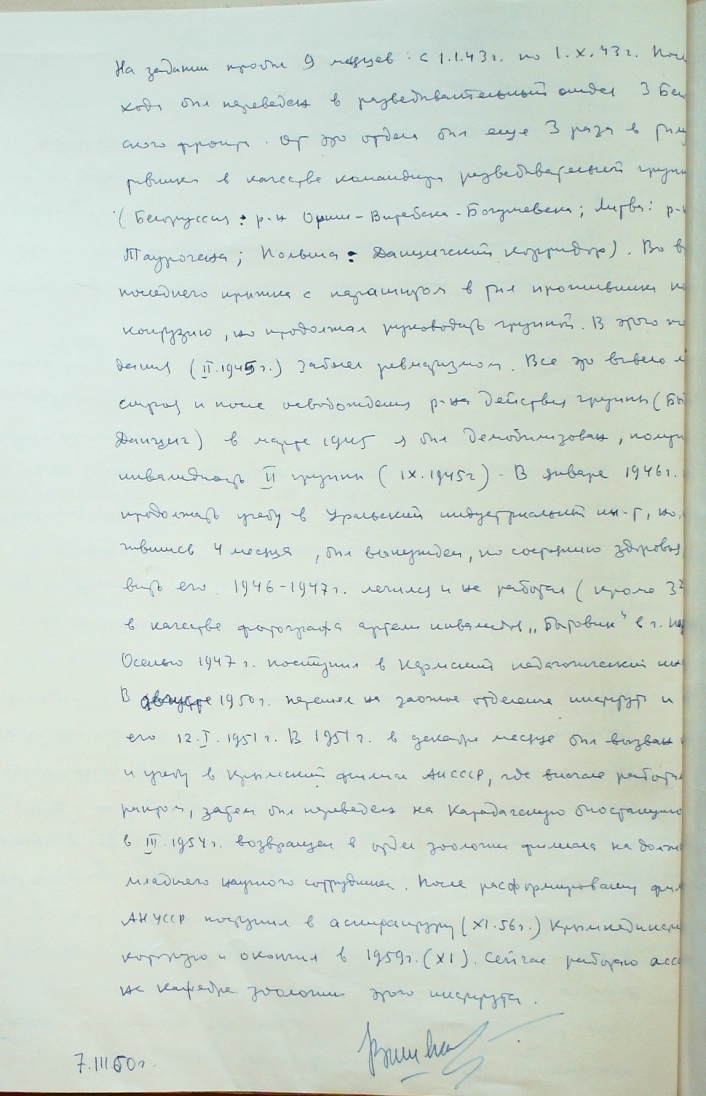 На задании пробыл 9 месяцев с 1.I.43г. по 1.X.43г. Посл
хода был переведен в разведывательный отдел 3 Бел
ского фронта. От это отдела был еще 3 раза в тылу
тивника в качестве командира разведывательной групп
(Белоруссия: р-н Орши-Витебска-Богушевска; Литва: р-н
Таурогена; Польша: Данцигский корридор). Во в
последнего прыжка с парашютом в тыл противника
контузию, но продолжал руководить группой. В этого
дания (II.1945г.) заболел ревматизмом. Все это вывело
строя и после освобождения р-на действия группы (
Данциг) в марте 1945 я был демобилизован, полу
инвалидность II группы (IX.1945г). В январе 1946г.
продолжать учебу в Уральский индустриальный ин-т, но,
чившись 4 месяца, был вынужден, по состоянию здоровья
вить его. 1946-1947г. лечился и не работал (кроме 3х
в качестве фотографа артели инвалидов „Бытовик" в г.
Осенью 1947г. поступил в Крымский педагогический ин
В августе 1950г. перешел на заочное отделение института и
его 12.I.1951г. В 1951г. в декабре месяце был вызван
и учебу в Крымский филиал АН СССР, где вначале работ
рантом, затем был переведен на Карадагскую биостанцию
в III.1954г. возвращен в отдел зоологии филиала на долж
младшего научного сотрудника. После расформирования фил
АН УССР поступил в аспирантуру (XI.56г.) Крымпединст
которую и окончил в 1959г. (XI). Сейчас работаю асс
на кафедре зоологии этого института.
7.III.60г.